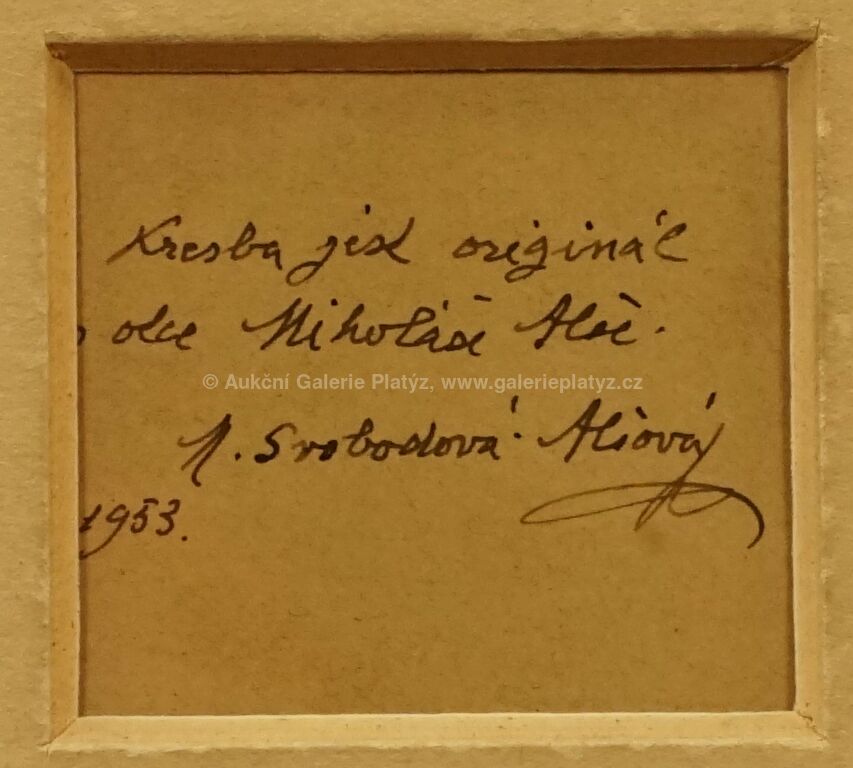 Kresba jest originál
otce Mikoláše Alše.
© Aukční Galerie Platýz, www.galerieplatyz.cz
M. Svobodová Alšová
1953.